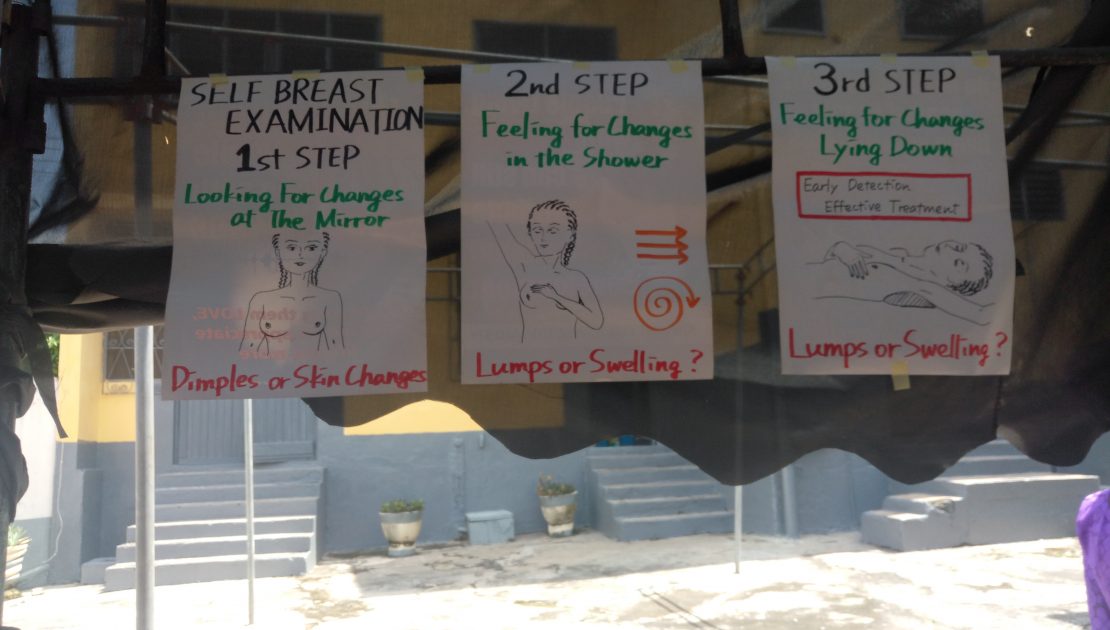 SELF BREAST
EXAMINATION
1st STEP
Looking For Changes
at The Mirror
Dimples or Skin Changes
2nd STEP
Feeling for Changes
in the Shower
Lumps or Swelling ?
3rd STEP
Feeling for Changes
Lying Down
Early Detection
Effective Treatment
Lumps or Swelling ?